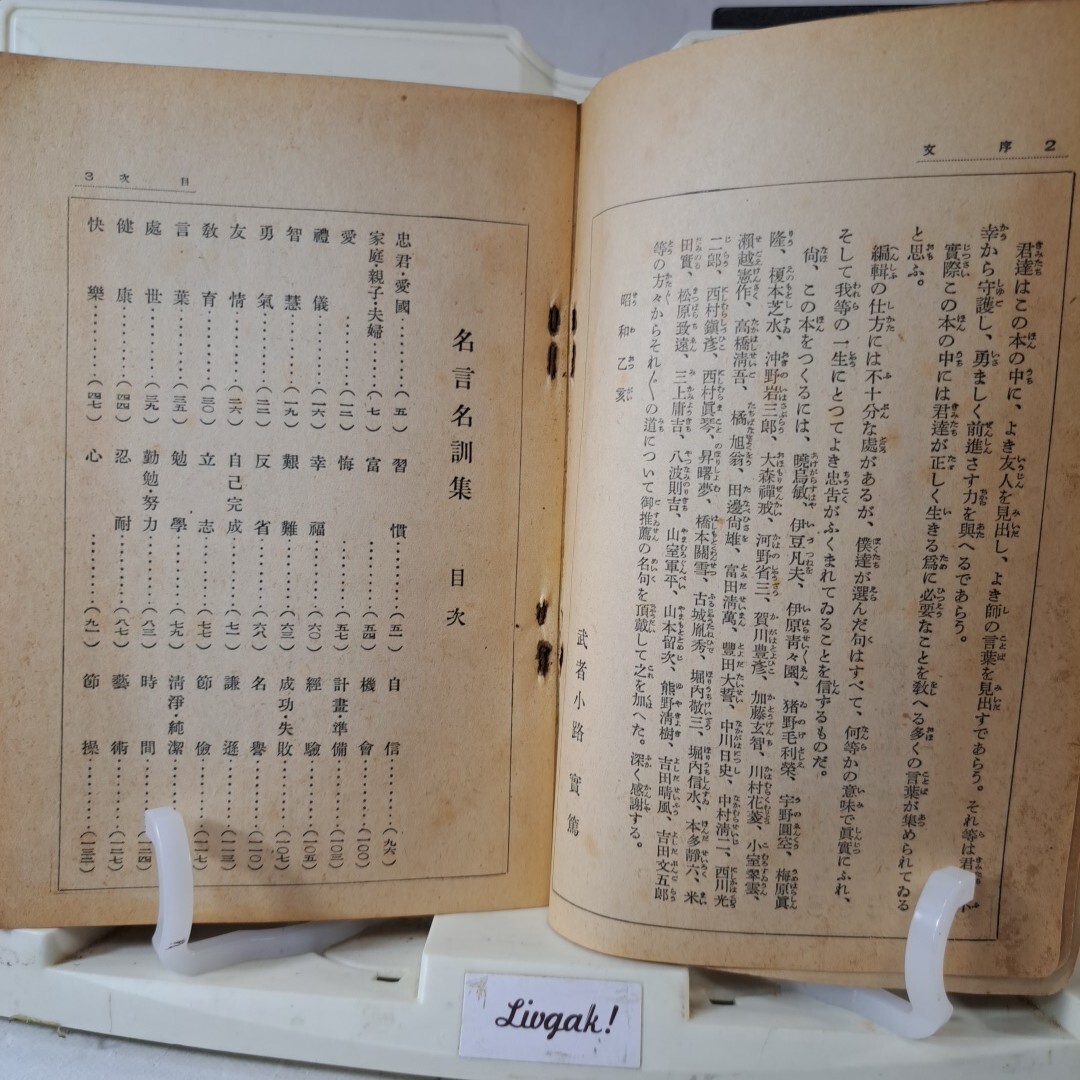 2 序文
君達はこの本の中に、よき友人を見出し、よき師の言葉を見出すであらう。それ等は君
幸から守護し、勇ましく前進さす力を與へるであらう。
實際この本の中には君達が正しく生きる爲に必要なことを敎へる多くの言葉が集められてゐる
と思ふ。
編輯の仕方には不十分な處があるが、僕達が選んだ句はすべて、何等かの意味で眞實にふれ、
そして我等の一生にとつてよき忠告がふくまれてゐることを信ずるものだ。
尙、この本をつくるには、曉烏敏、伊豆凡夫、伊原靑々園、猪野毛利榮、宇野圓空、梅原眞
隆、榎本芝水、沖野岩三郎、大森禪戒、河野省三、賀川豊彥、加藤玄智、川村花菱、小室翠雲、
瀨越憲作、高橋淸吾、橘旭翁、田邊尙雄、富田淸萬、豐田大誓、中川日史、中村淸二、西川光
二郎、西村鎭彥、西村眞琴、昇曙夢、橋本關雪、古城胤秀、堀內敬三、堀內信水、本多靜六、米
田實、松原致遠、三上庸吉、八波則吉、山室軍平、山本留次、熊野淸樹、吉田晴風、吉田文五郎
等の方々からそれ〴〵の道について御推薦の名句を頂戴して之を加へた。深く感謝する。
昭和乙亥
武者小路實篤
目次 3
名言名訓集 目次
忠君・愛國………(五)
家庭・親子・夫婦……(七)
愛………(一二)
禮儀………(一六)
智慧………(一九)
勇氣………(二二)
友情………(二六)
敎育………(三〇)
言葉………(三五)
處世………(三九)
健康………(四四)
快樂………(四七)
習慣………(五一)
富………(五四)
悔………(五七)
幸福………(六〇)
艱難………(六三)
反省………(六八)
自己完成………(七一)
立志………(七五)
勉學………(七九)
勤勉・努力………(八三)
忍耐………(八七)
心………(九一)
自信………(九六)
機會………(一〇〇)
計畫・準備………(一〇三)
經驗………(一〇五)
成功・失敗………(一〇七)
名譽………(一一〇)
謙遜………(一一三)
節儉………(一一七)
淸淨・純潔
時間
藝術………(一二七)
節操………(一三二)
Livgak!